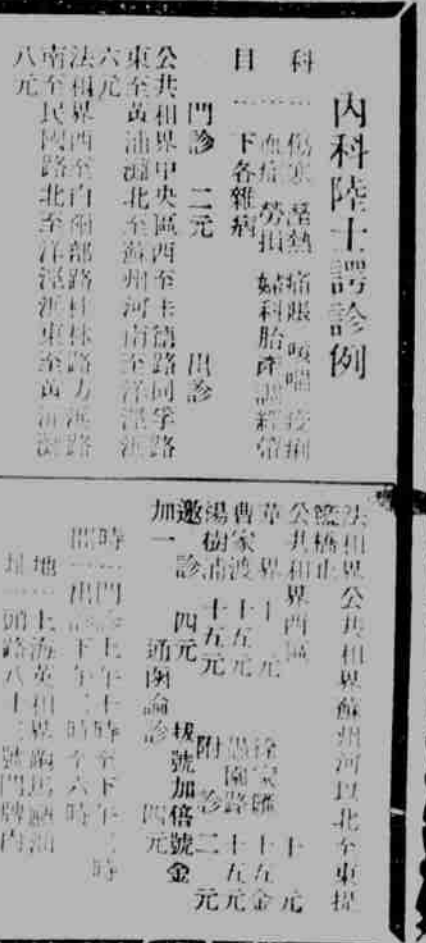 內科陸士諤診例
科…傷寒 溼熱 痛脹 咳喘 痧痢
血症 勞損 婦科胎產調經帶
目…下各雜病
門診 二元 出診
公共租界中央區西至卡德路同孚路
東至黃浦灘北至蘇州河南至洋涇浜
六元
法租界西至白爾部路桂林路方浜路
南至民國路北至洋涇浜東至黃浦灘
八元
法租界公共租界蘇州河以北至東提
籃橋止 十元
公共租界西區 十元
華界十元 徐家匯 十五金
曹家渡 十五元 愚園路 十五元
楊樹浦 十五元 附診二元
邀診 四元 拔號加倍號金
加一 通函論診 四元
時…門診上午十時至下午二時
間…出診下午二時至六時
地…上海英租界跑馬廳汕
址…頭路八十二號門牌內